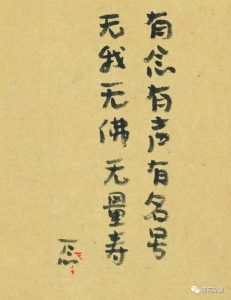 有念有声有名号
无我无佛无量寿